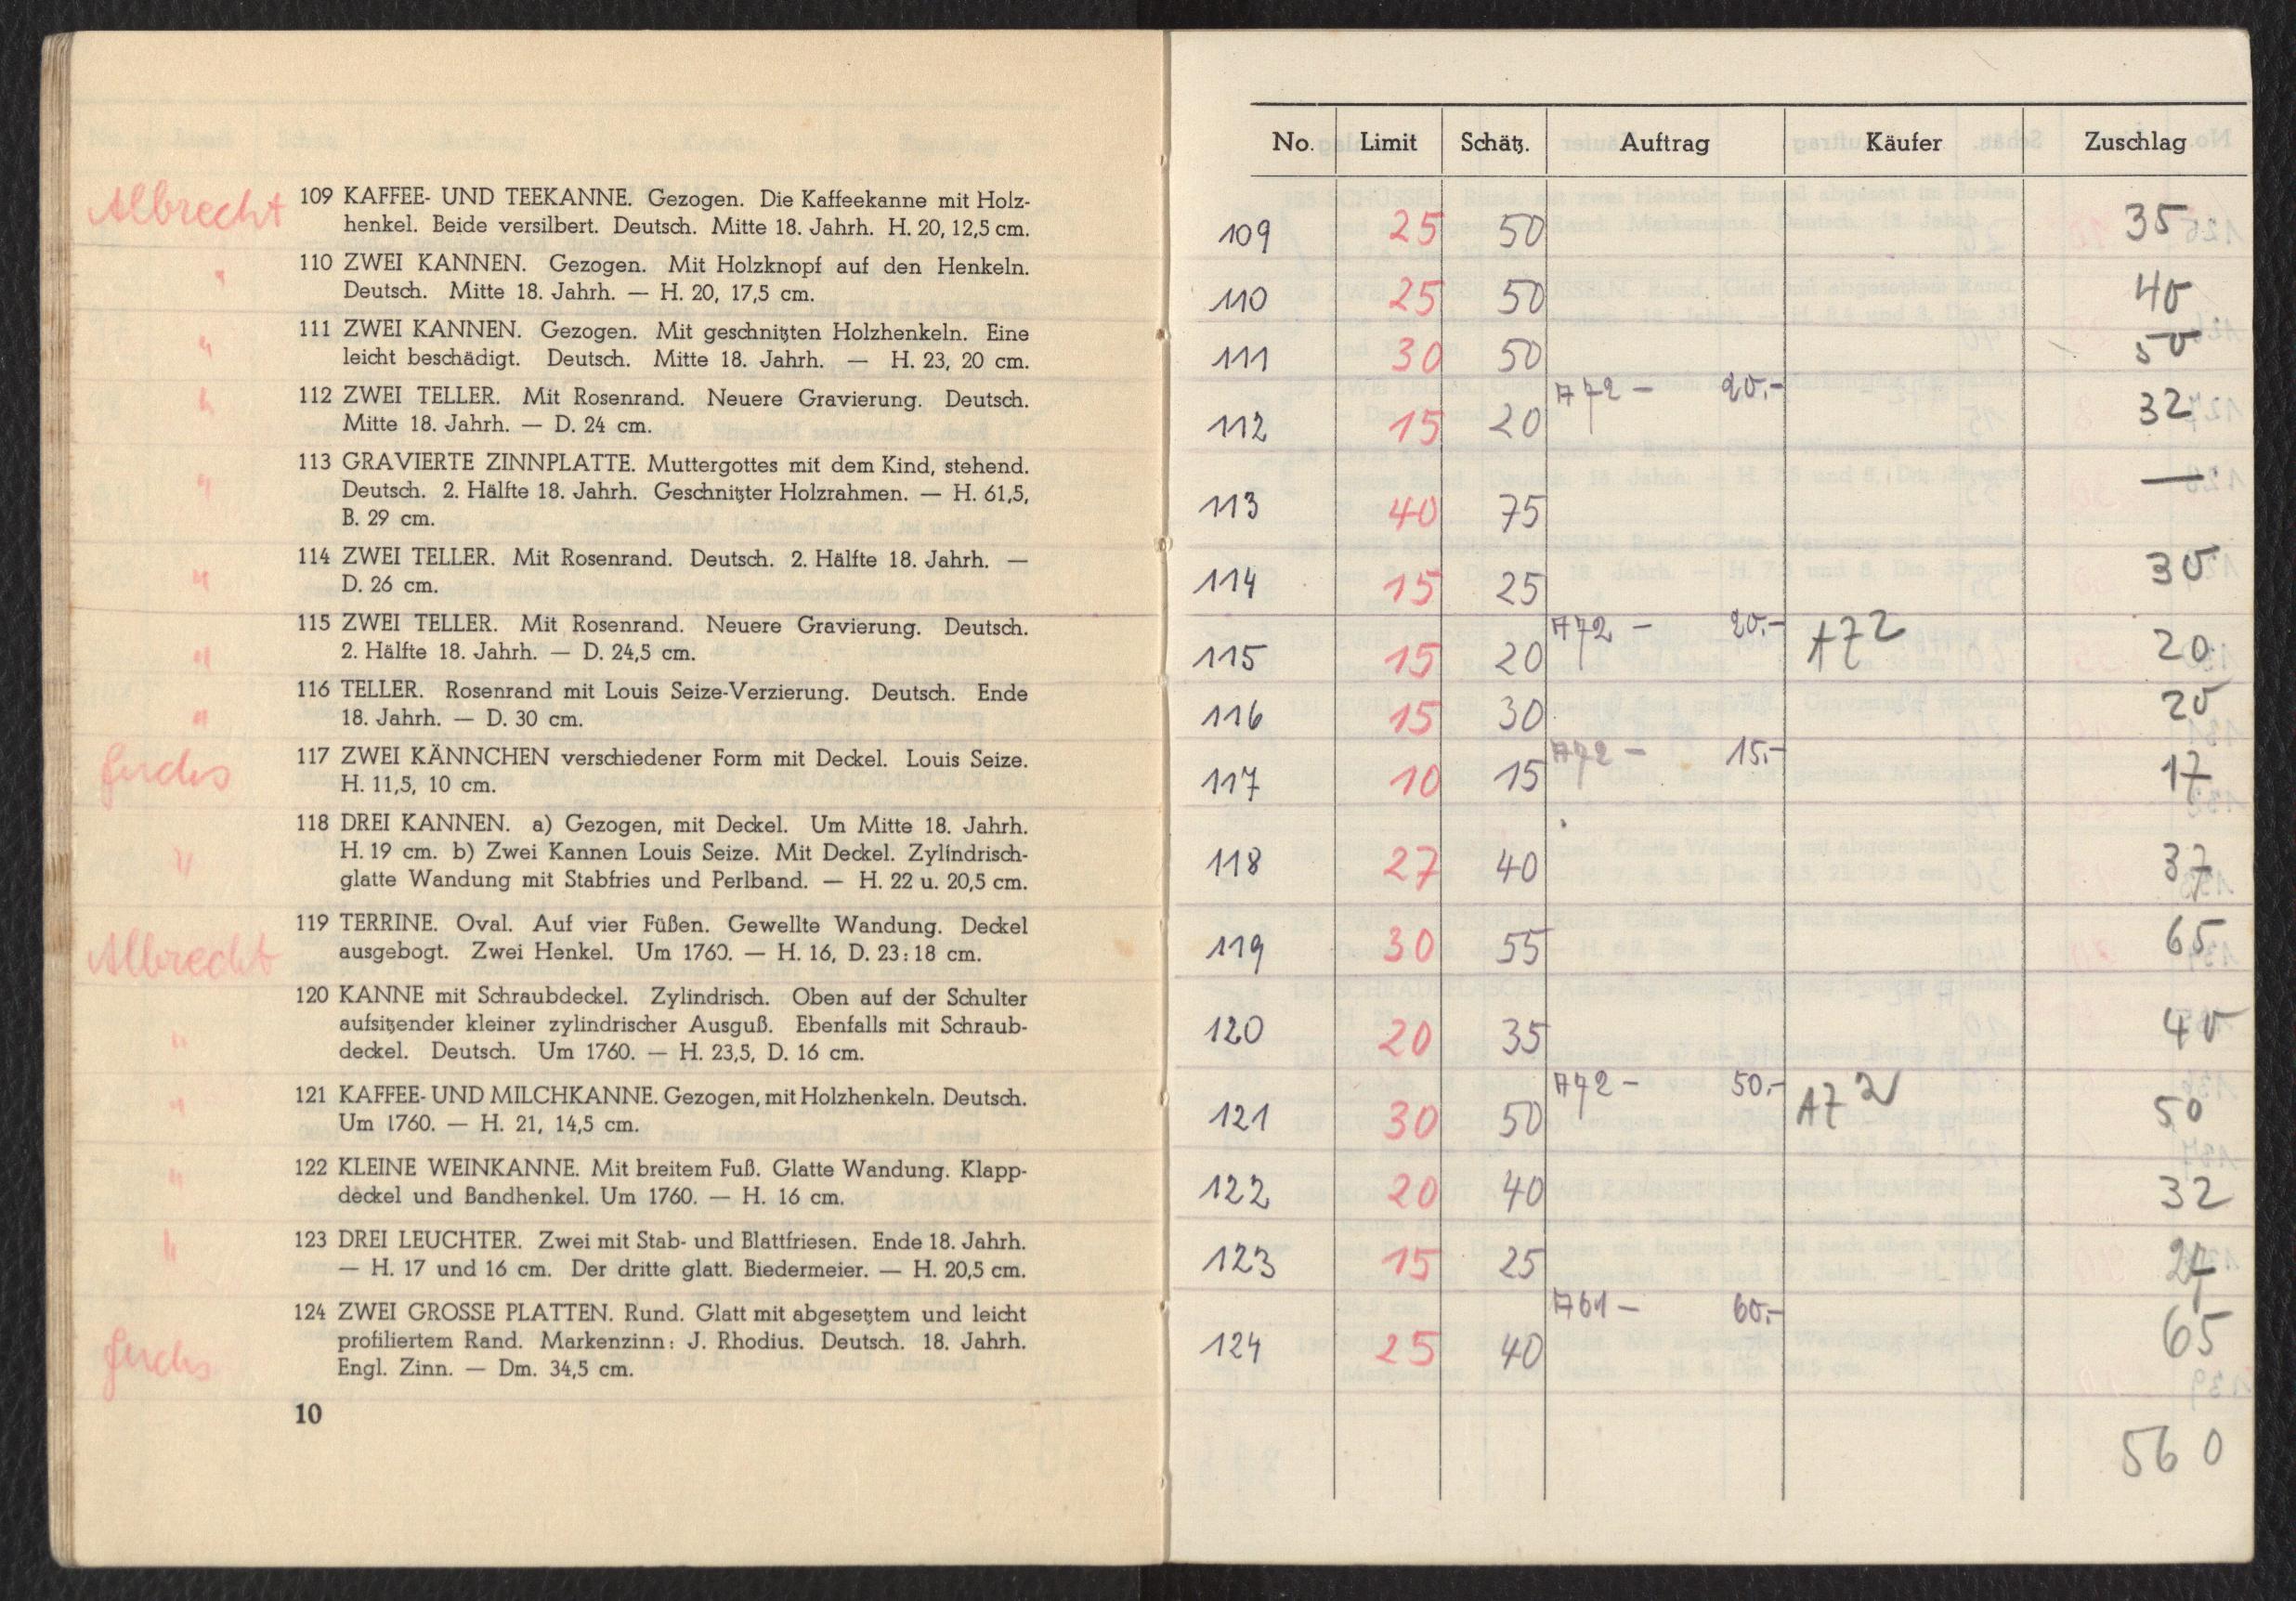 Albrecht
109 KAFFEE- UND TEEKANNE. Gezogen. Die Kaffeekanne mit Holz-
henkel. Beide versilbert. Deutsch. Mitte 18. Jahrh. H. 20, 12,5 cm.
" 110 ZWEI KANNEN. Gezogen. Mit Holzknopf auf den Henkeln.
Deutsch. Mitte 18. Jahrh. — H. 20, 17,5 cm.
" 111 ZWEI KANNEN. Gezogen. Mit geschnitzten Holzhenkeln. Eine
leicht beschädigt. Deutsch. Mitte 18. Jahrh. — H. 23, 20 cm.
" 112 ZWEI TELLER. Mit Rosenrand. Neuere Gravierung. Deutsch.
Mitte 18. Jahrh. — D. 24 cm.
" 113 GRAVIERTE ZINNPLATTE. Muttergottes mit dem Kind, stehend.
Deutsch. 2. Hälfte 18. Jahrh. Geschnitzter Holzrahmen. — H. 61,5,
B. 29 cm.
" 114 ZWEI TELLER. Mit Rosenrand. Deutsch. 2. Hälfte 18. Jahrh. —
D. 26 cm.
" 115 ZWEI TELLER. Mit Rosenrand. Neuere Gravierung. Deutsch.
2. Hälfte 18. Jahrh. — D. 24,5 cm.
" 116 TELLER. Rosenrand mit Louis Seize-Verzierung. Deutsch. Ende
18. Jahrh. — D. 30 cm.
Fuchs
117 ZWEI KÄNNCHEN verschiedener Form mit Deckel. Louis Seize.
H. 11,5, 10 cm.
" 118 DREI KANNEN. a) Gezogen, mit Deckel. Um Mitte 18. Jahrh.
H. 19 cm. b) Zwei Kannen Louis Seize. Mit Deckel. Zylindrisch-
glatte Wandung mit Stabfries und Perlband. — H. 22 u. 20,5 cm.
Albrecht
119 TERRINE. Oval. Auf vier Füßen. Gewellte Wandung. Deckel
ausgebogt. Zwei Henkel. Um 1760. — H. 16, D. 23:18 cm.
" 120 KANNE mit Schraubdeckel. Zylindrisch. Oben auf der Schulter
aufsitzender kleiner zylindrischer Ausguß. Ebenfalls mit Schraub-
deckel. Deutsch. Um 1760. — H. 23,5, D. 16 cm.
" 121 KAFFEE- UND MILCHKANNE. Gezogen, mit Holzhenkeln. Deutsch.
Um 1760. — H. 21, 14,5 cm.
" 122 KLEINE WEINKANNE. Mit breitem Fuß. Glatte Wandung. Klapp-
deckel und Bandhenkel. Um 1760. — H. 16 cm.
" 123 DREI LEUCHTER. Zwei mit Stab- und Blattfriesen. Ende 18. Jahrh.
— H. 17 und 16 cm. Der dritte glatt. Biedermeier. — H. 20,5 cm.
Fuchs
124 ZWEI GROSSE PLATTEN. Rund. Glatt mit abgesetztem und leicht
profiliertem Rand. Markenzinn: J. Rhodius. Deutsch. 18. Jahrh.
Engl. Zinn. — Dm. 34,5 cm.
10
No. Limit Schätz. Auftrag Käufer Zuschlag
109 25 50 35
110 25 50 40
111 30 50 50
112 15 20 A72 — 20.- 32
113 40 75 —
114 15 25 30
115 15 20 A72 — 20.- A72 20
116 15 30 20
117 10 15 A72 — 15.- 17
118 27 40 37
119 30 55 65
120 20 35 40
121 30 50 A72 — 50.- A72 50
122 20 40 32
123 15 25 27
124 25 40 A61 — 60.- 65
560